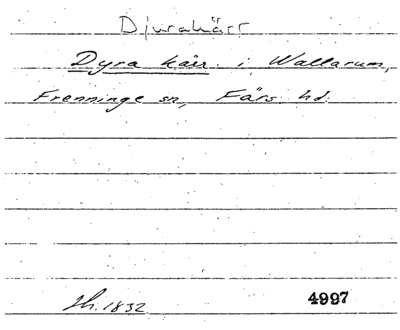 Djurakärr
Dyra kärr i Wallarum,
Frenninge sn, Färs hd.
Th. 1832 4997